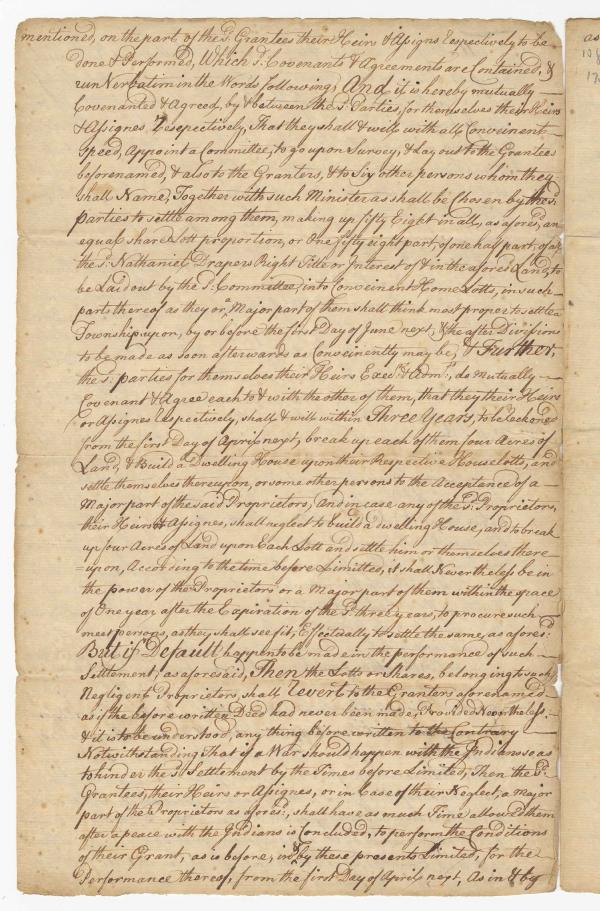 mentioned, on the part of the sd. Grantees their Heirs & Assigns Respectively to be
done & Performed, Which sd. Covenants & Agreements are Contained, &
run Verbatim in the Words following, And it is hereby mutually
Covenanted & Agreed, by & between the sd. Parties, for themselves their Heirs
& Assignes Respectively, That they shall & will with all Conveinent
Speed, Appoint a Committee, to go upon Survey, & Lay out to the Grantees
beforenamed, & also to the Granters, & to Six other persons whom they
shall Name, Together with such Minister as shall be Chosen by the sd.
parties to settle among them, making up fifty Eight in all, as aforesd., an
equal share Lott proportion, or One fifty eight part, of one half part, of all
the sd. Nathaniel Drapers Right Title or Interest of & in the aforesd. Land, to
be Laid out by the sd. Committee, into Conveinent Home Lotts, in such
parts thereof as they or a Major part of them shall think most proper to settle a
Township upon, by or before the first Day of June next, & the after Divisions
to be made as soon afterwards as Conveinently may be, & Further,
the sd. parties for themselves their Heirs Execrs. & Admrs., do Mutually
Covenant & Agree each to & with the other of them, that they their Heirs
or Assignes Respectively, shall & will within Three Years, to be Reckoned
from the first Day of April next, break up each of them four Acres of
Land, & Build a Dwelling House upon their Respective House lotts, and
settle themselves thereupon, or some other persons to the Acceptance of a
Major part of the said Proprietors, And in case any of the sd. Proprietors,
their Heirs or Assignes, shall neglect to build a dwelling House, and to break
up four Acres of Land upon Each Lott and settle him or themselves there
=upon, According to the time before Limitted, it shall Nevertheless be in
the power of the Proprietors or a Major part of them within the space
of One year after the Expiration of the sd. three years, to procure such
meet persons, as they shall see fit, Effectually to settle the same, as aforesd.
But if Default happen to be made in the performance of such
Settlement, as aforesaid, Then the Lotts or Shares, belonging to such
Negligent Proprietors, shall Revert to the Granters aforenamed
as if the before written Deed had never been made, Provided Nevertheless,
& it is to be understood, any thing before written to the Contrary
Notwithstanding, That if a War should happen with the Indians so as
to hinder the sd. Settlement by the Times before Limited, Then the sd.
Grantees, their Heirs or Assignes, or in Case of their Neglect, a Major
part of the Proprietors as aforesd., shall have as much Time allow'd them
after a peace with the Indians is Concluded, to perform the Conditions
of their Grant, as is before, in & by these presents Limited, for the
Performance thereof, from the first Day of April next, As in & by
as